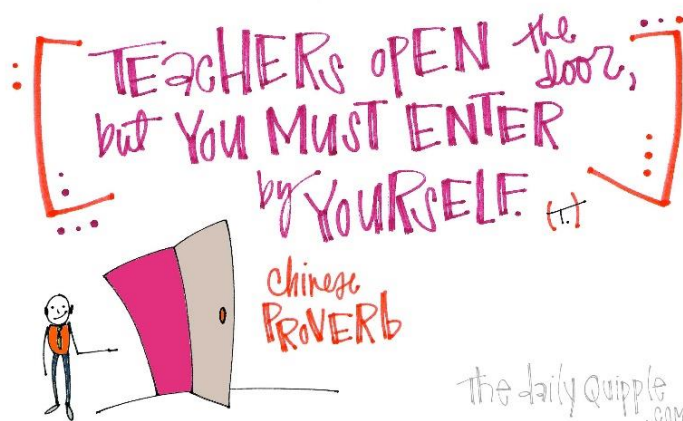 TEacHERs opEN the door,
but YOU MUST ENTER
by YOURSELF. (T.)
chinese
PROVERb
the daily Quipple
.COM